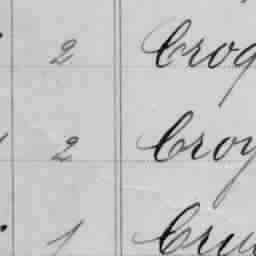 2 Crog
2 Croy
1 Cru